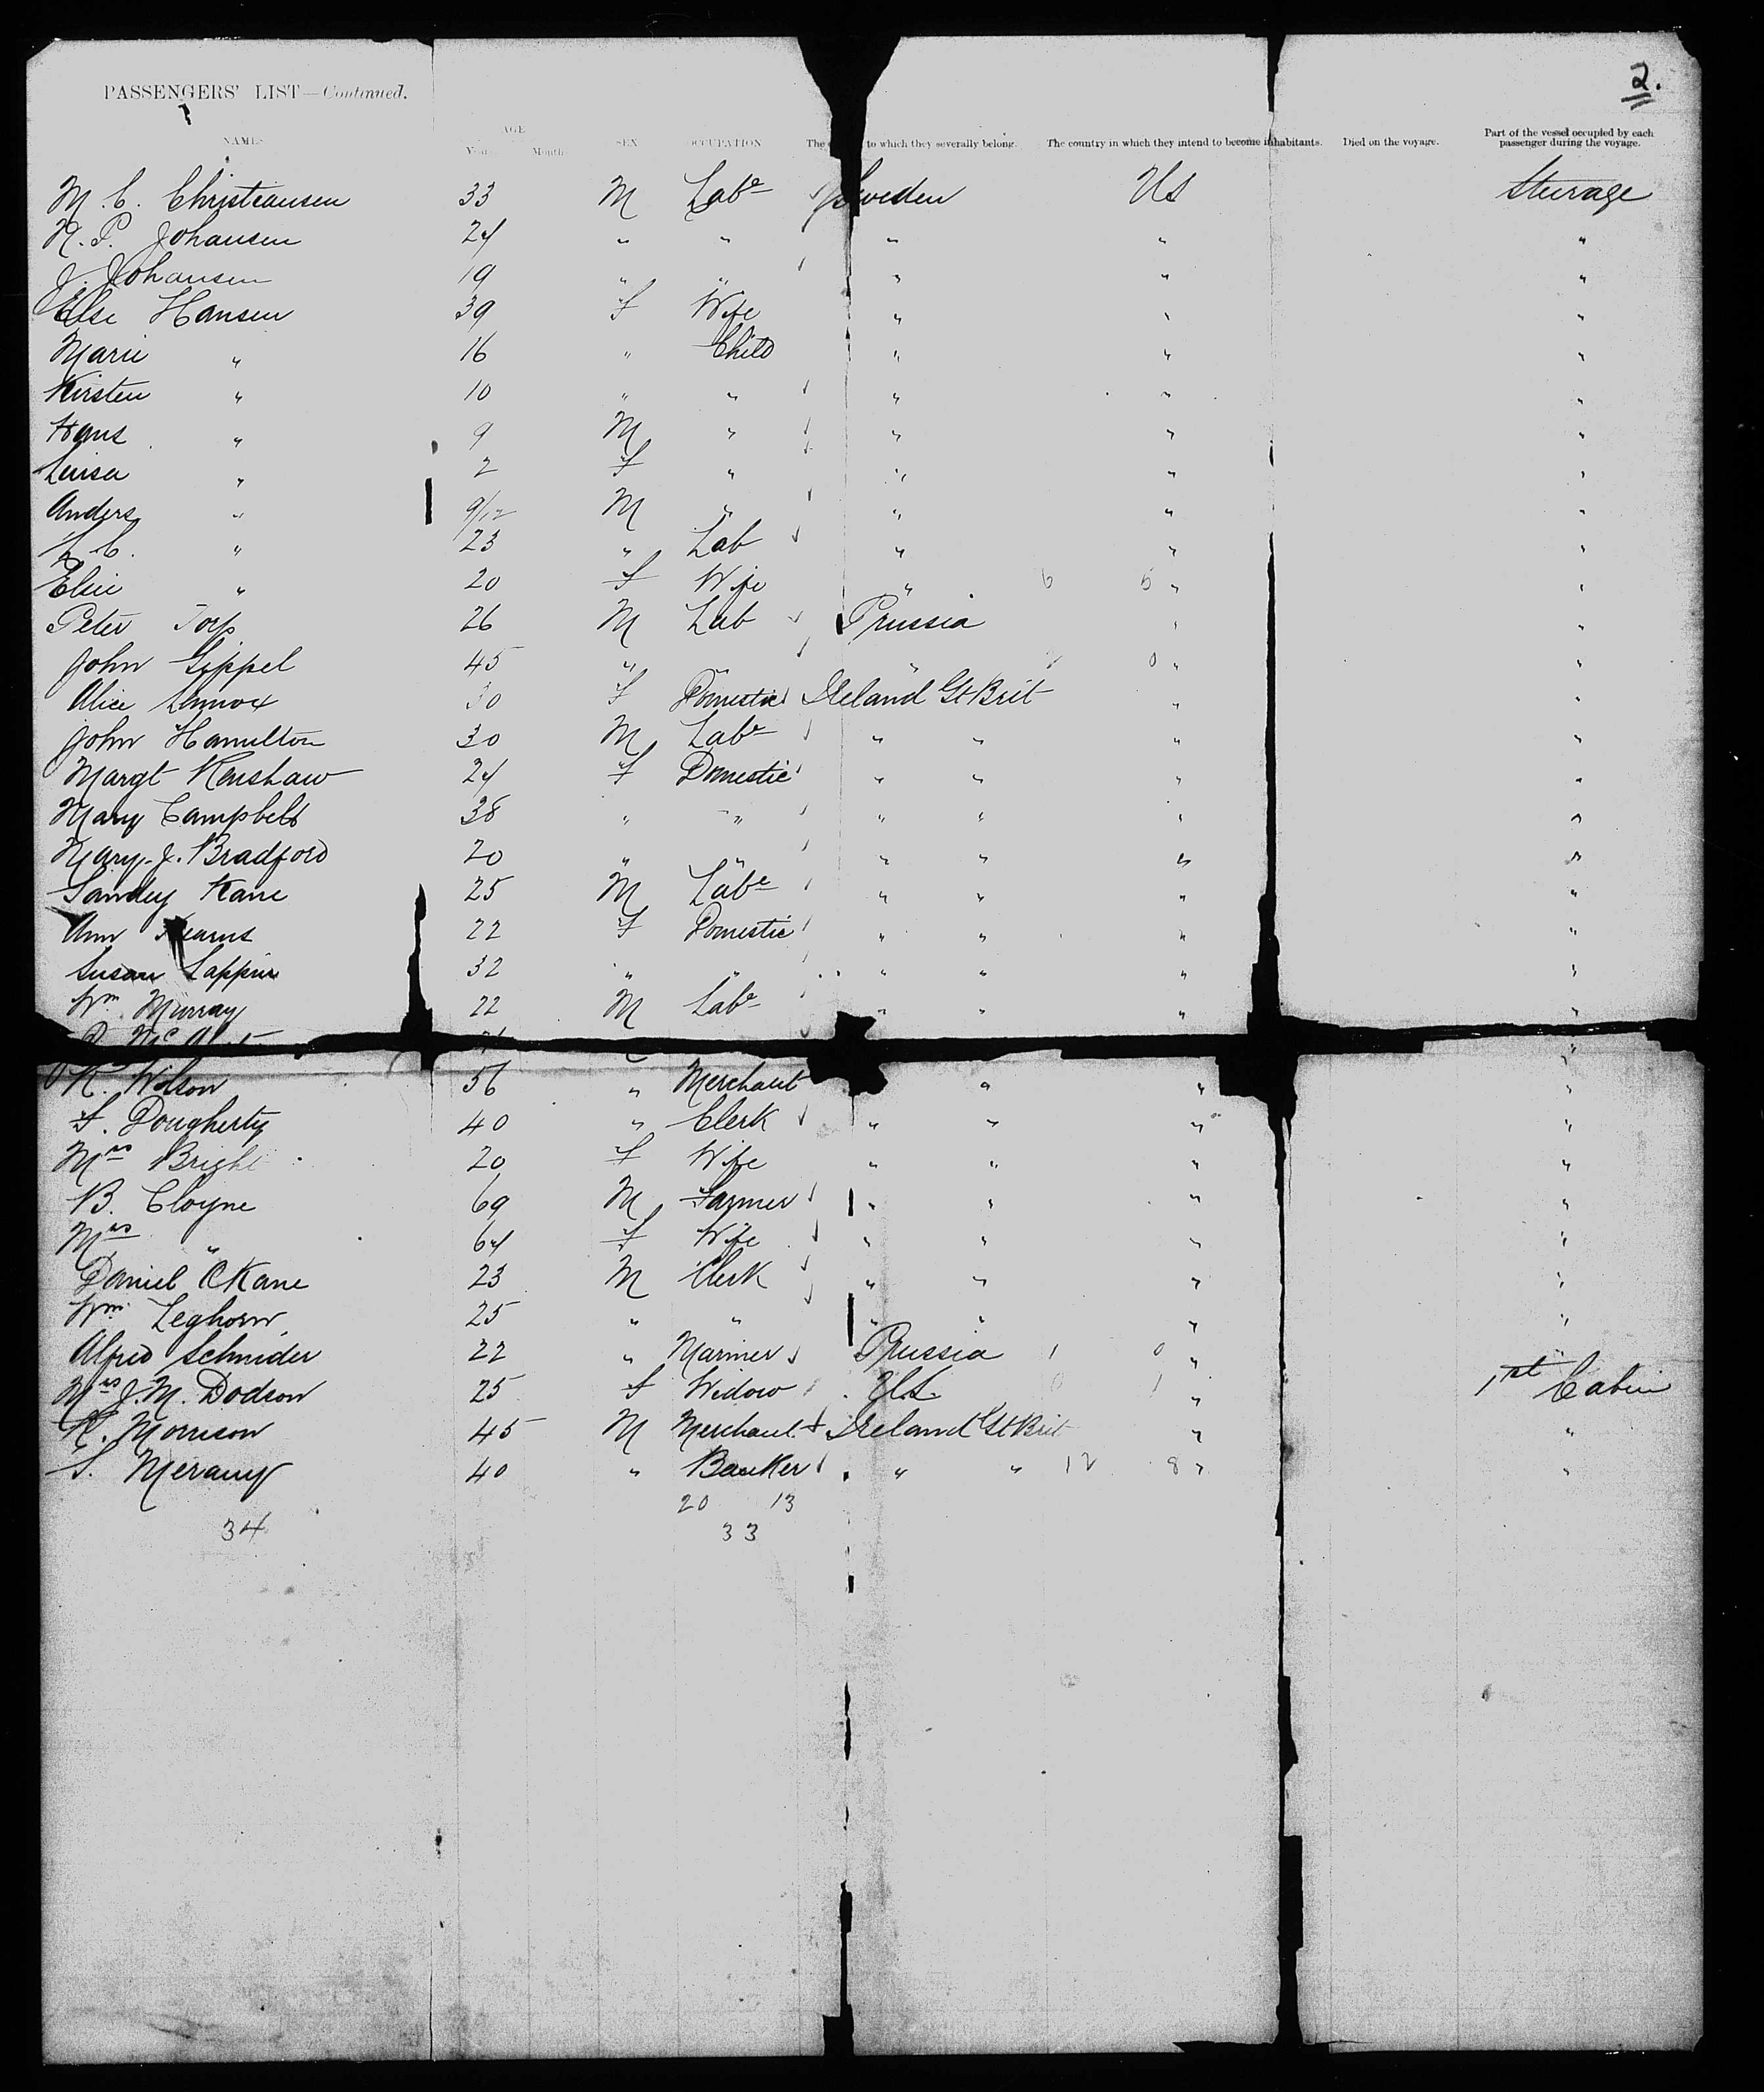 2.
PASSENGERS' LIST—Continued.
NAMES AGE Years Months SEX OCCUPATION The to which they severally belong. The country in which they intend to become inhabitants. Died on the voyage. Part of the vessel occupied by each passenger during the voyage.
M. C. Christiansen 33 M Labr Sweden US Steerage
N. P. Johansen 24 " " " " "
J. Johansen 19 " " " " "
Else Hansen 39 F Wife " " "
Marie " 16 " Child " " "
Kirsten " 10 " " " " "
Hans " 9 M " " " "
Luisa " 2 F " " " "
Anders " 9/12 M " " " "
C. " 23 " Lab " " "
Elsie " 20 F Wife " 6 5 " "
Peter Torp 26 M Lab Prussia " "
John Gippel 45 " " " 0 " "
Alice Lennox 30 F Domestic Ireland Gt Brit " "
John Hamilton 30 M Labr " " " "
Margt Kenshaw 24 F Domestic " " " "
Mary Campbell 38 " " " " " "
Mary J. Bradford 20 " " " " " "
Sandy Kane 25 M Labr " " " "
Ann Kearns 22 F Domestic " " " "
Susan Lappin 32 " " " " " "
Wm Murray 22 M Labr " " " "
Mc
R. Wilson 56 " Merchant " " "
S. Dougherty 40 " Clerk " " " "
Mrs Bright 20 F Wife " " " "
B. Cloyne 69 M Farmer " " " "
Mrs " 64 F Wife " " " "
Daniel O'Kane 23 M Clerk " " " "
Wm Leghorn 25 " " " " " "
Alfred Schnider 22 " Mariner Prussia 1 0 " "
Mrs J. M. Dodson 25 F Widow U.S. 0 1 " 1st Cabin
R. Morrison 45 M Merchant Ireland Gt Brit " "
S. 40 " Banker " " 12 8 " "
20 13
34 33